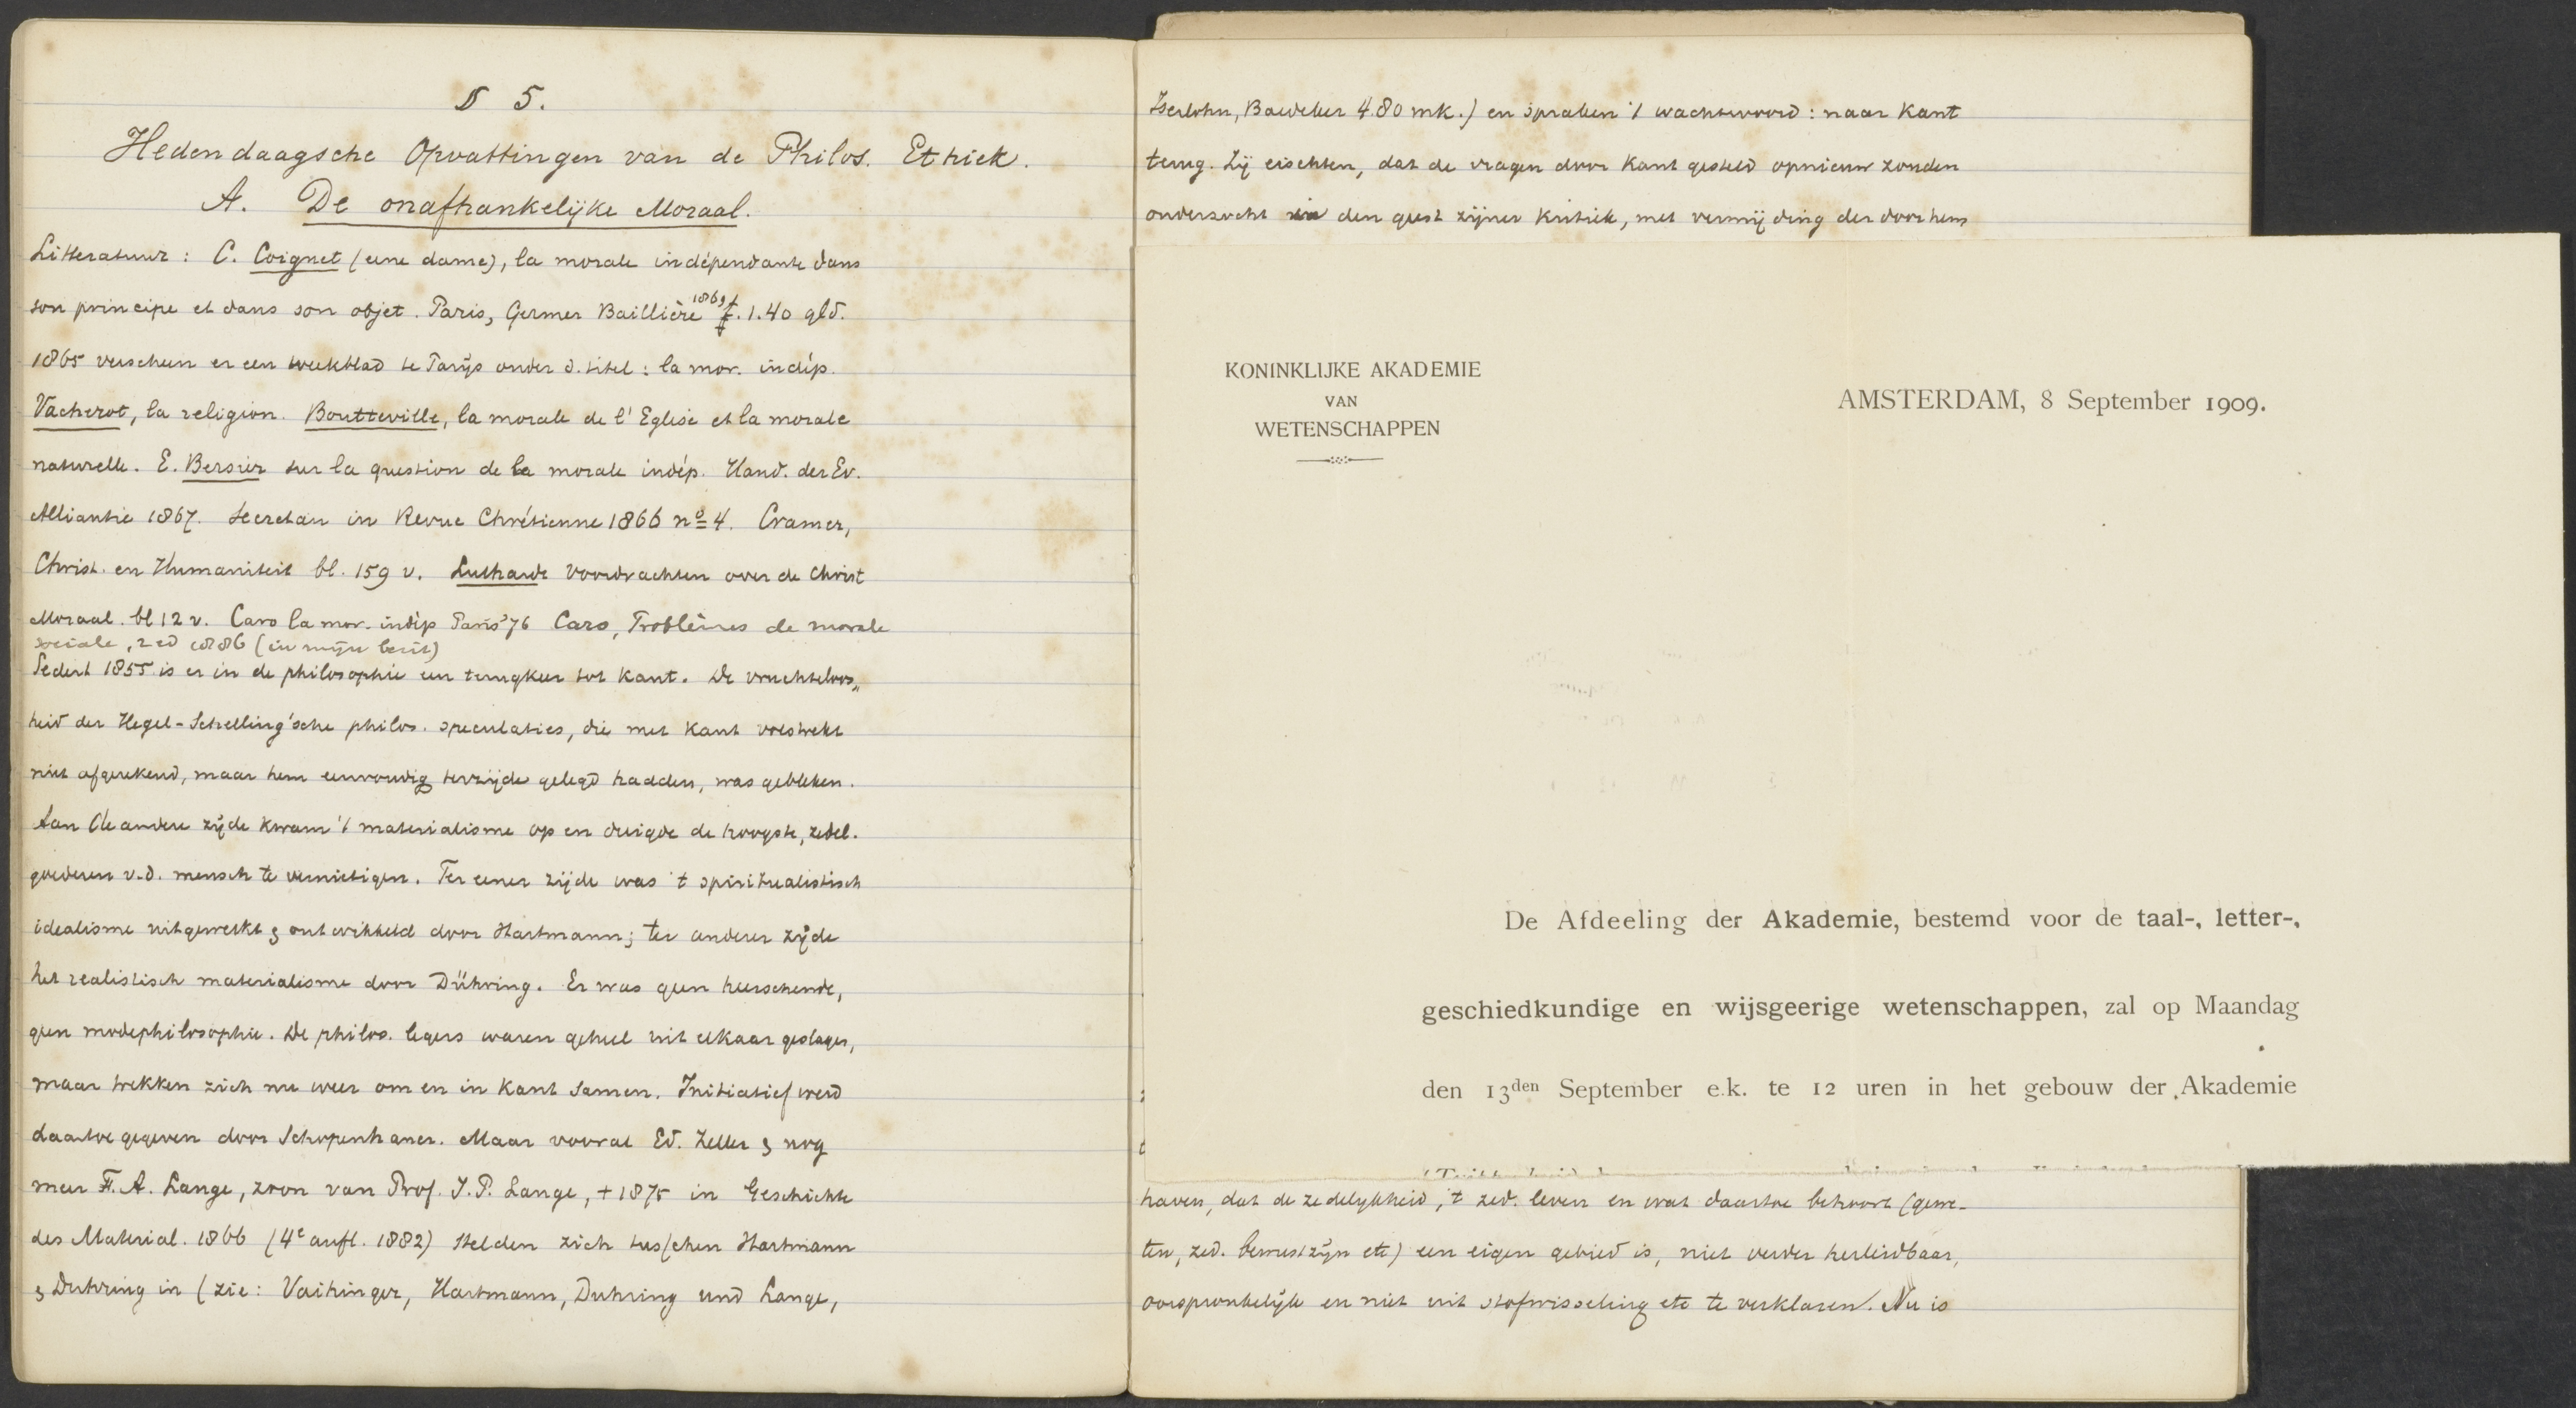 § 5.
Hedendaagsche Opvattingen van de Philos. Ethiek.
A. De onafhankelijke Moraal.
Litteratuur: C. Coignet (eene dame), la morale indépendante dans
son principe et dans son objet. Paris, Germer Baillière 1869 f. 1.40 gld.
1865 verscheen er een weekblad te Parijs onder d. titel: la mor. indép.
Vacherot, la religion. Boutteville, la morale de l'Eglise et la morale
naturelle. E. Bersier sur la question de la morale indép. Hand. der Ev.
Alliantie 1867. Secretan in Revue Chrétienne 1866 no 4. Cramer,
Christ. en Humaniteit bl. 159 v. Luthardt Voordrachten over de Christ
Moraal. bl 12 v. Caro la mor. indép Paris '76 Caro, Problèmes de morale
sociale, 2 ed 1886 (in mijn bezit)
Sedert 1855 is er in de philosophie een terugkeer tot Kant. De vruchteloos„
heid der Hegel-Schelling'sche philos. speculaties, die met Kant volstrekt
niet afgerekend, maar hem eenvoudig terzijde gelegd hadden, was gebleken.
Aan de andere zijde kwam 't materialisme op en dreigde de hoogste, zedel.
goederen v.d. mensch te vernietigen. Ter eener zijde was 't spiritualistisch
idealisme uitgewerkt & ontwikkeld door Hartmann; ter anderer zijde
het realistisch materialisme door Dühring. Er was geen heerschende,
geen modephilosophie. De philos. legers waren geheel uit elkaar geslagen,
maar trekken zich nu weer om en in Kant samen. Initiatief werd
daartoe gegeven door Schopenhauer. Maar vooral Ed. Zeller & nog
meer F. A. Lange, zoon van Prof. J. P. Lange, + 1875 in Geschichte
des Material. 1866 (4e aufl. 1882) stelden zich tusschen Hartmann
& Duhring in (zie: Vaihinger, Hartmann, Duhring und Lange,
Iserlohn, Baedeker 4.80 mk.) en spraken 't wachtwoord: naar Kant
terug. Zij eischten, dat de vragen door Kant gesteld opnieuw zouden
onderzocht in den geest zijner Kritiek, met vermijding der door hem
KONINKLIJKE AKADEMIE
VAN
WETENSCHAPPEN
AMSTERDAM, 8 September 1909.
De Afdeeling der Akademie, bestemd voor de taal-, letter-,
geschiedkundige en wijsgeerige wetenschappen, zal op Maandag
den 13den September e.k. te 12 uren in het gebouw der Akademie
haven, dat de zedelijkheid, 't zed. leven en wat daartoe behoort (gewe-
ten, zed. bewustzijn etc) een eigen gebied is, niet verder herleidbaar,
oorspronkelijk en niet uit stofwisseling etc te verklaren. Nu is